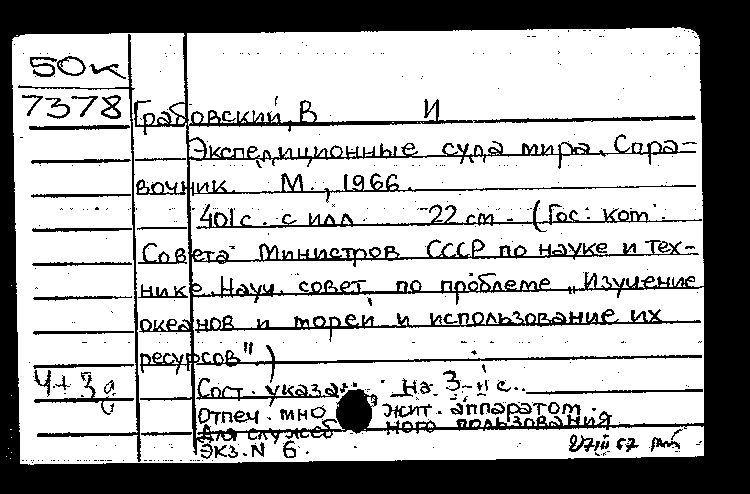 50к
7378
Грабовский, В И
Экспедиционные суда мира. Спра-
вочник. М., 1966.
401с. с илл 22 см. (Гос. ком.
Совета Министров СССР по науке и тех-
нике. Науч. совет по проблеме „Изучение
океанов и морей и использование их
ресурсов".)
4+3д
Сост. указан на 3-й с.
Отпеч. мно жит. аппаратом.
Для служеб ного пользования
Экз. N 6.
27 III 67